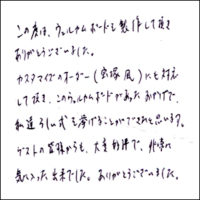 この度は、ウェルカムボードを製作して頂き
ありがとうございました。
カスタマイズのオーダー(宝塚風)にも対応
して頂き、このウェルカムボードがあったおかげで、
私達らしい式を挙げることができたと思います。
ゲストの皆様からも、大変好評で、非常に
気に入った出来でした。ありがとうございました。